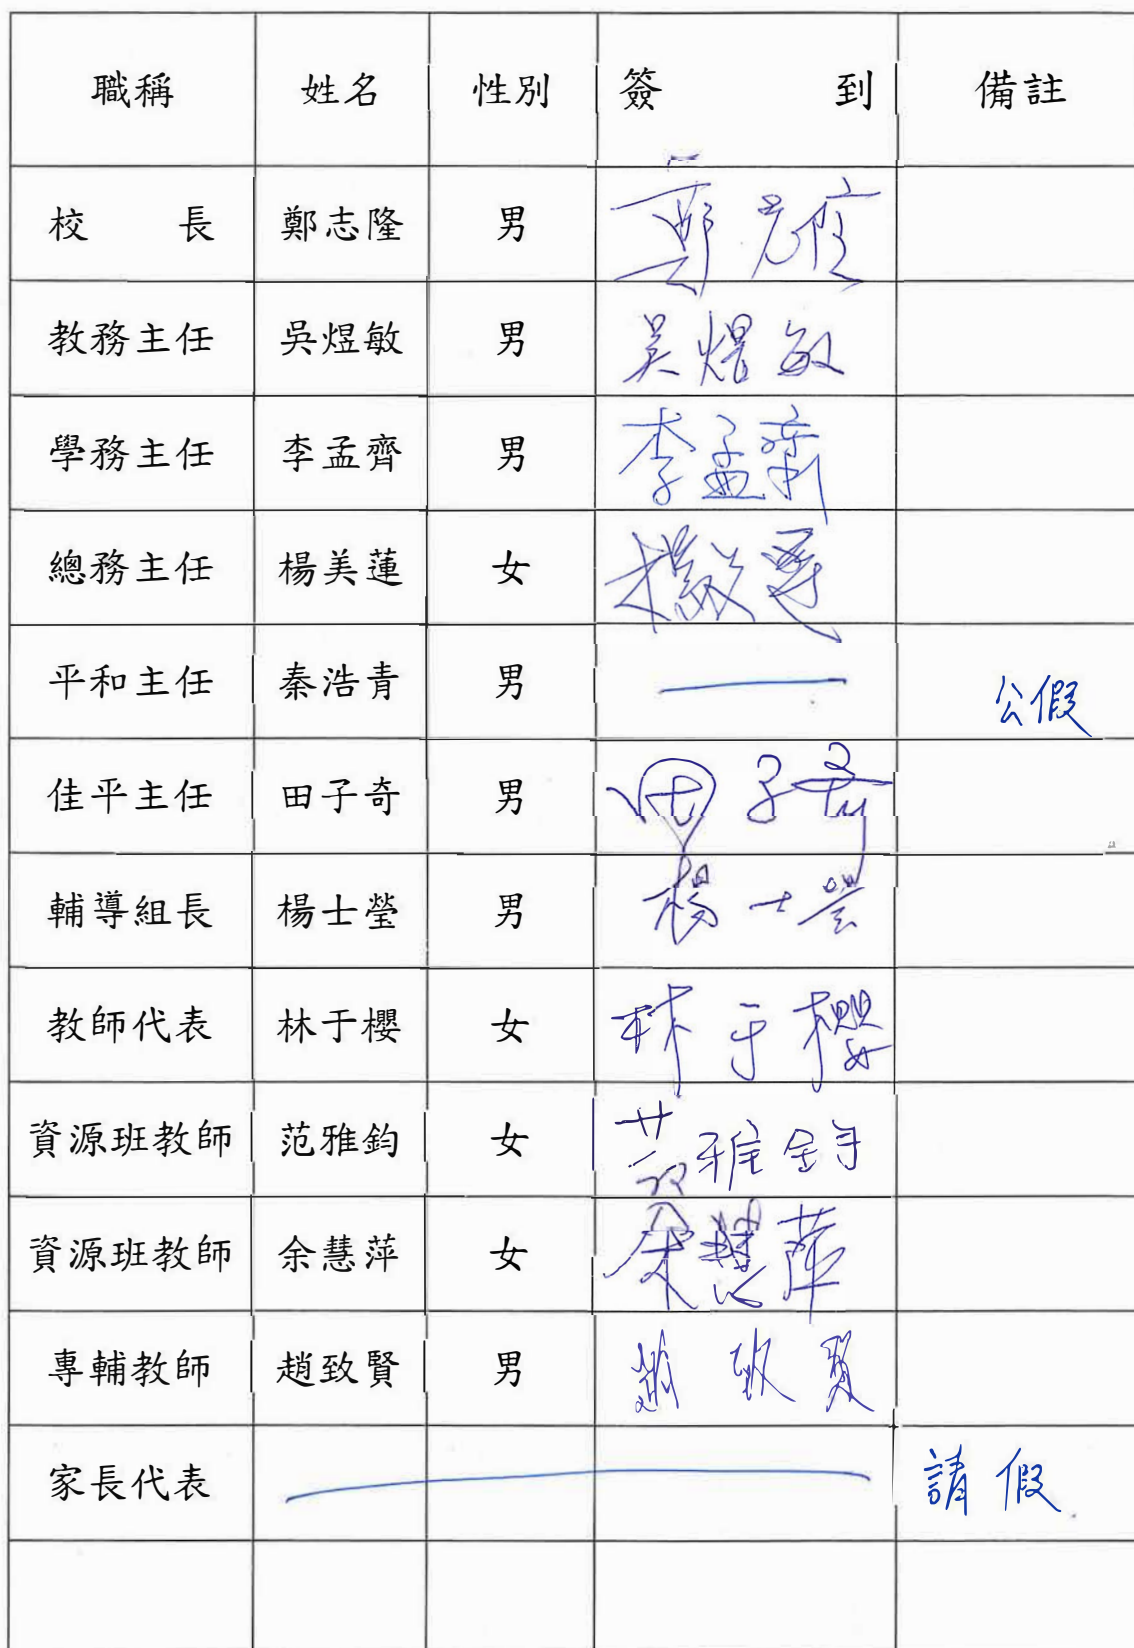 職稱 姓名 性別 簽到 備註
校長 鄭志隆 男 鄭志隆
教務主任 吳煜敏 男 吳煜敏
學務主任 李孟齊 男 李孟齊
總務主任 楊美蓮 女 楊美蓮
平和主任 秦浩青 男 公假
佳平主任 田子奇 男 田子奇
輔導組長 楊士瑩 男 楊士瑩
教師代表 林于櫻 女 林于櫻
資源班教師 范雅鈞 女 范雅鈞
資源班教師 余慧萍 女 余慧萍
專輔教師 趙致賢 男 趙致賢
家長代表 請假